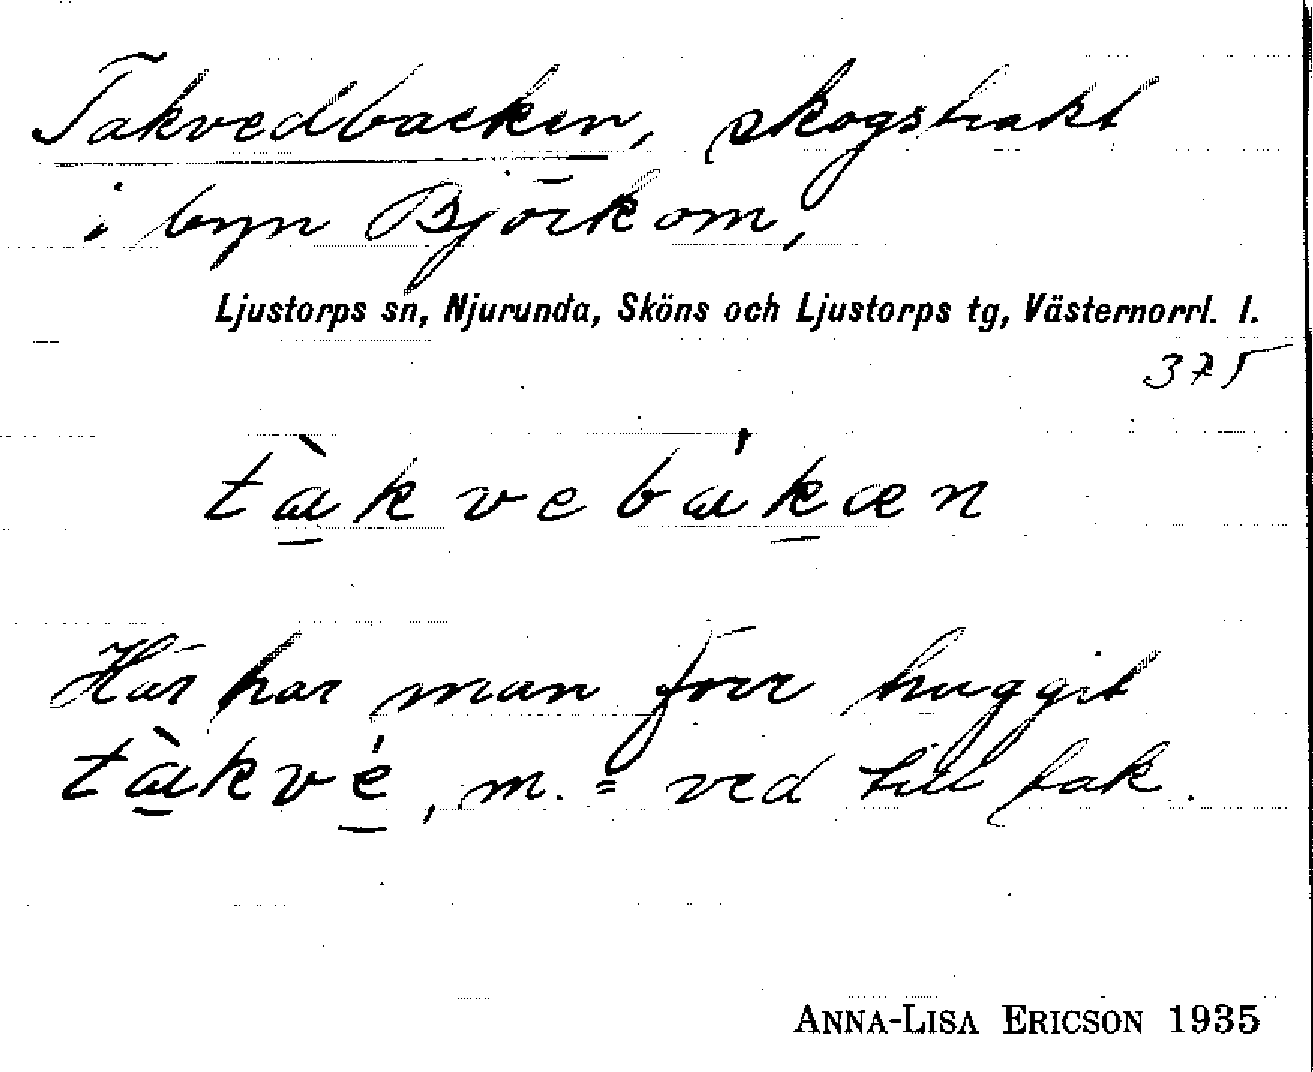 Takvedbacken, skogstrakt
i byn Björkom,
Ljustorps sn, Njurunda, Sköns och Ljustorps tg, Västernorrl. l.
375
tàkvebákæn
Här har man förr huggit
tàkvé, m. = ved till tak.
ANNA-LISA ERICSON 1935